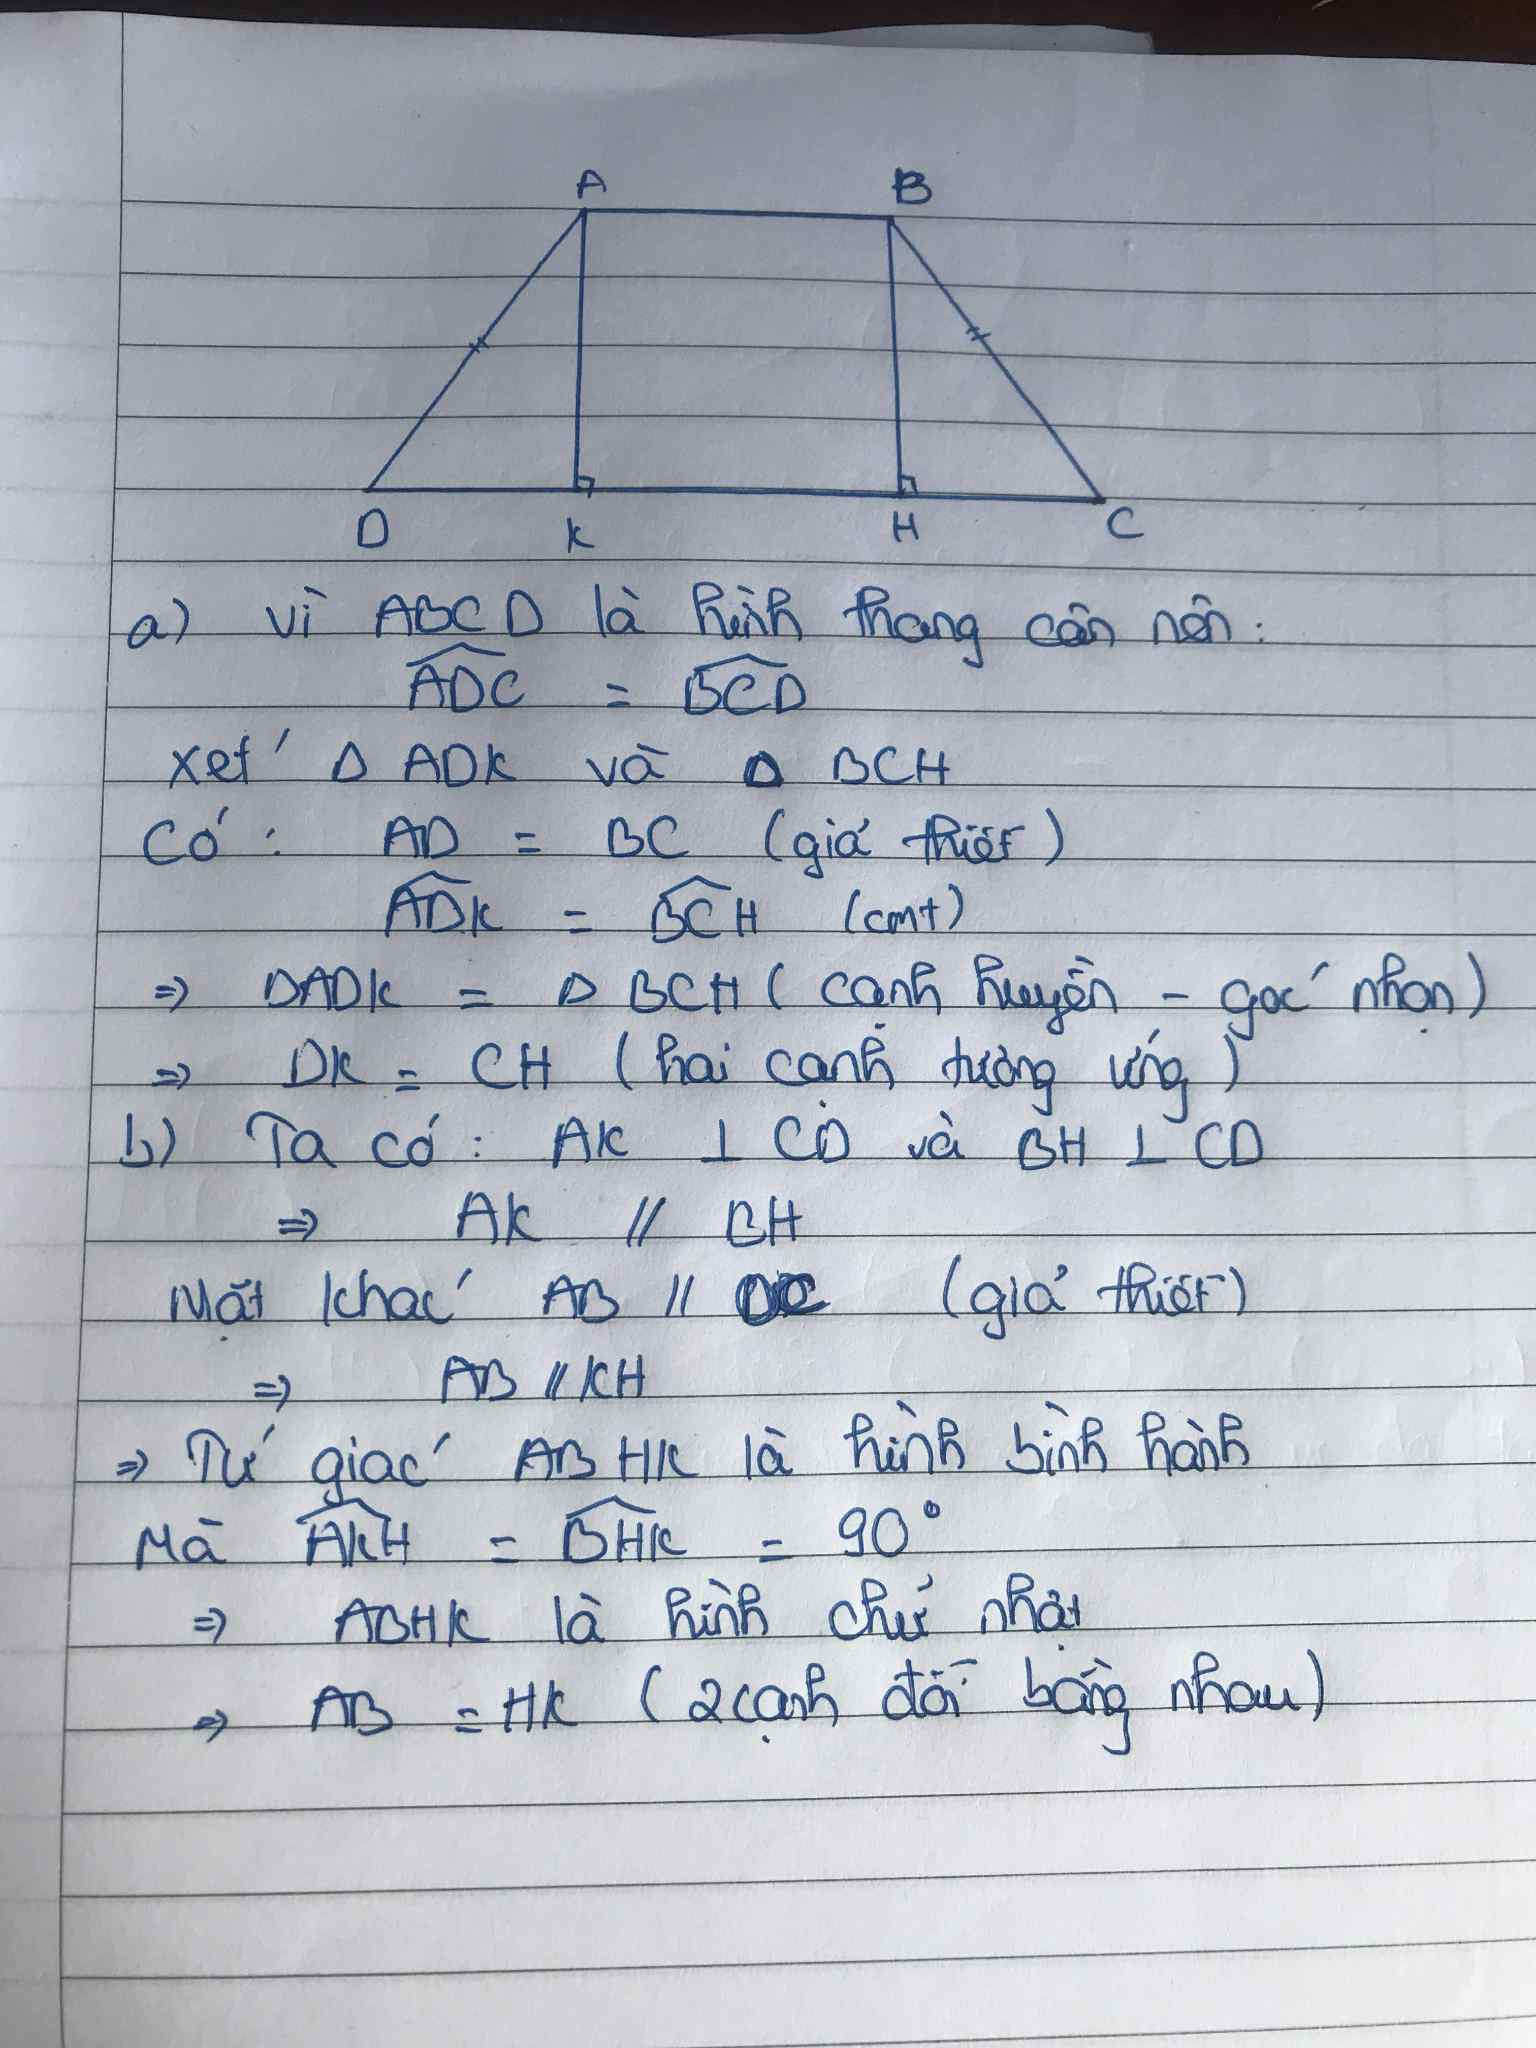 A B
D K H C
a) Vì ABCD là hình thang cân nên:
\widehat{ADC} = \widehat{BCD}
Xét Δ ADK và Δ BCH
Có: AD = BC (giả thiết)
\widehat{ADK} = \widehat{BCH} (cmt)
⇒ ΔADK = Δ BCH (cạnh huyền - góc nhọn)
⇒ DK = CH (hai cạnh tương ứng)
b) Ta có: AK ⊥ CD và BH ⊥ CD
⇒ AK // BH
Mặt khác AB // DC (giả thiết)
⇒ AB // KH
⇒ Tứ giác ABHK là hình bình hành
Mà \widehat{AKH} = \widehat{BHK} = 90°
⇒ ABHK là hình chữ nhật
⇒ AB = HK (2 cạnh đối bằng nhau)